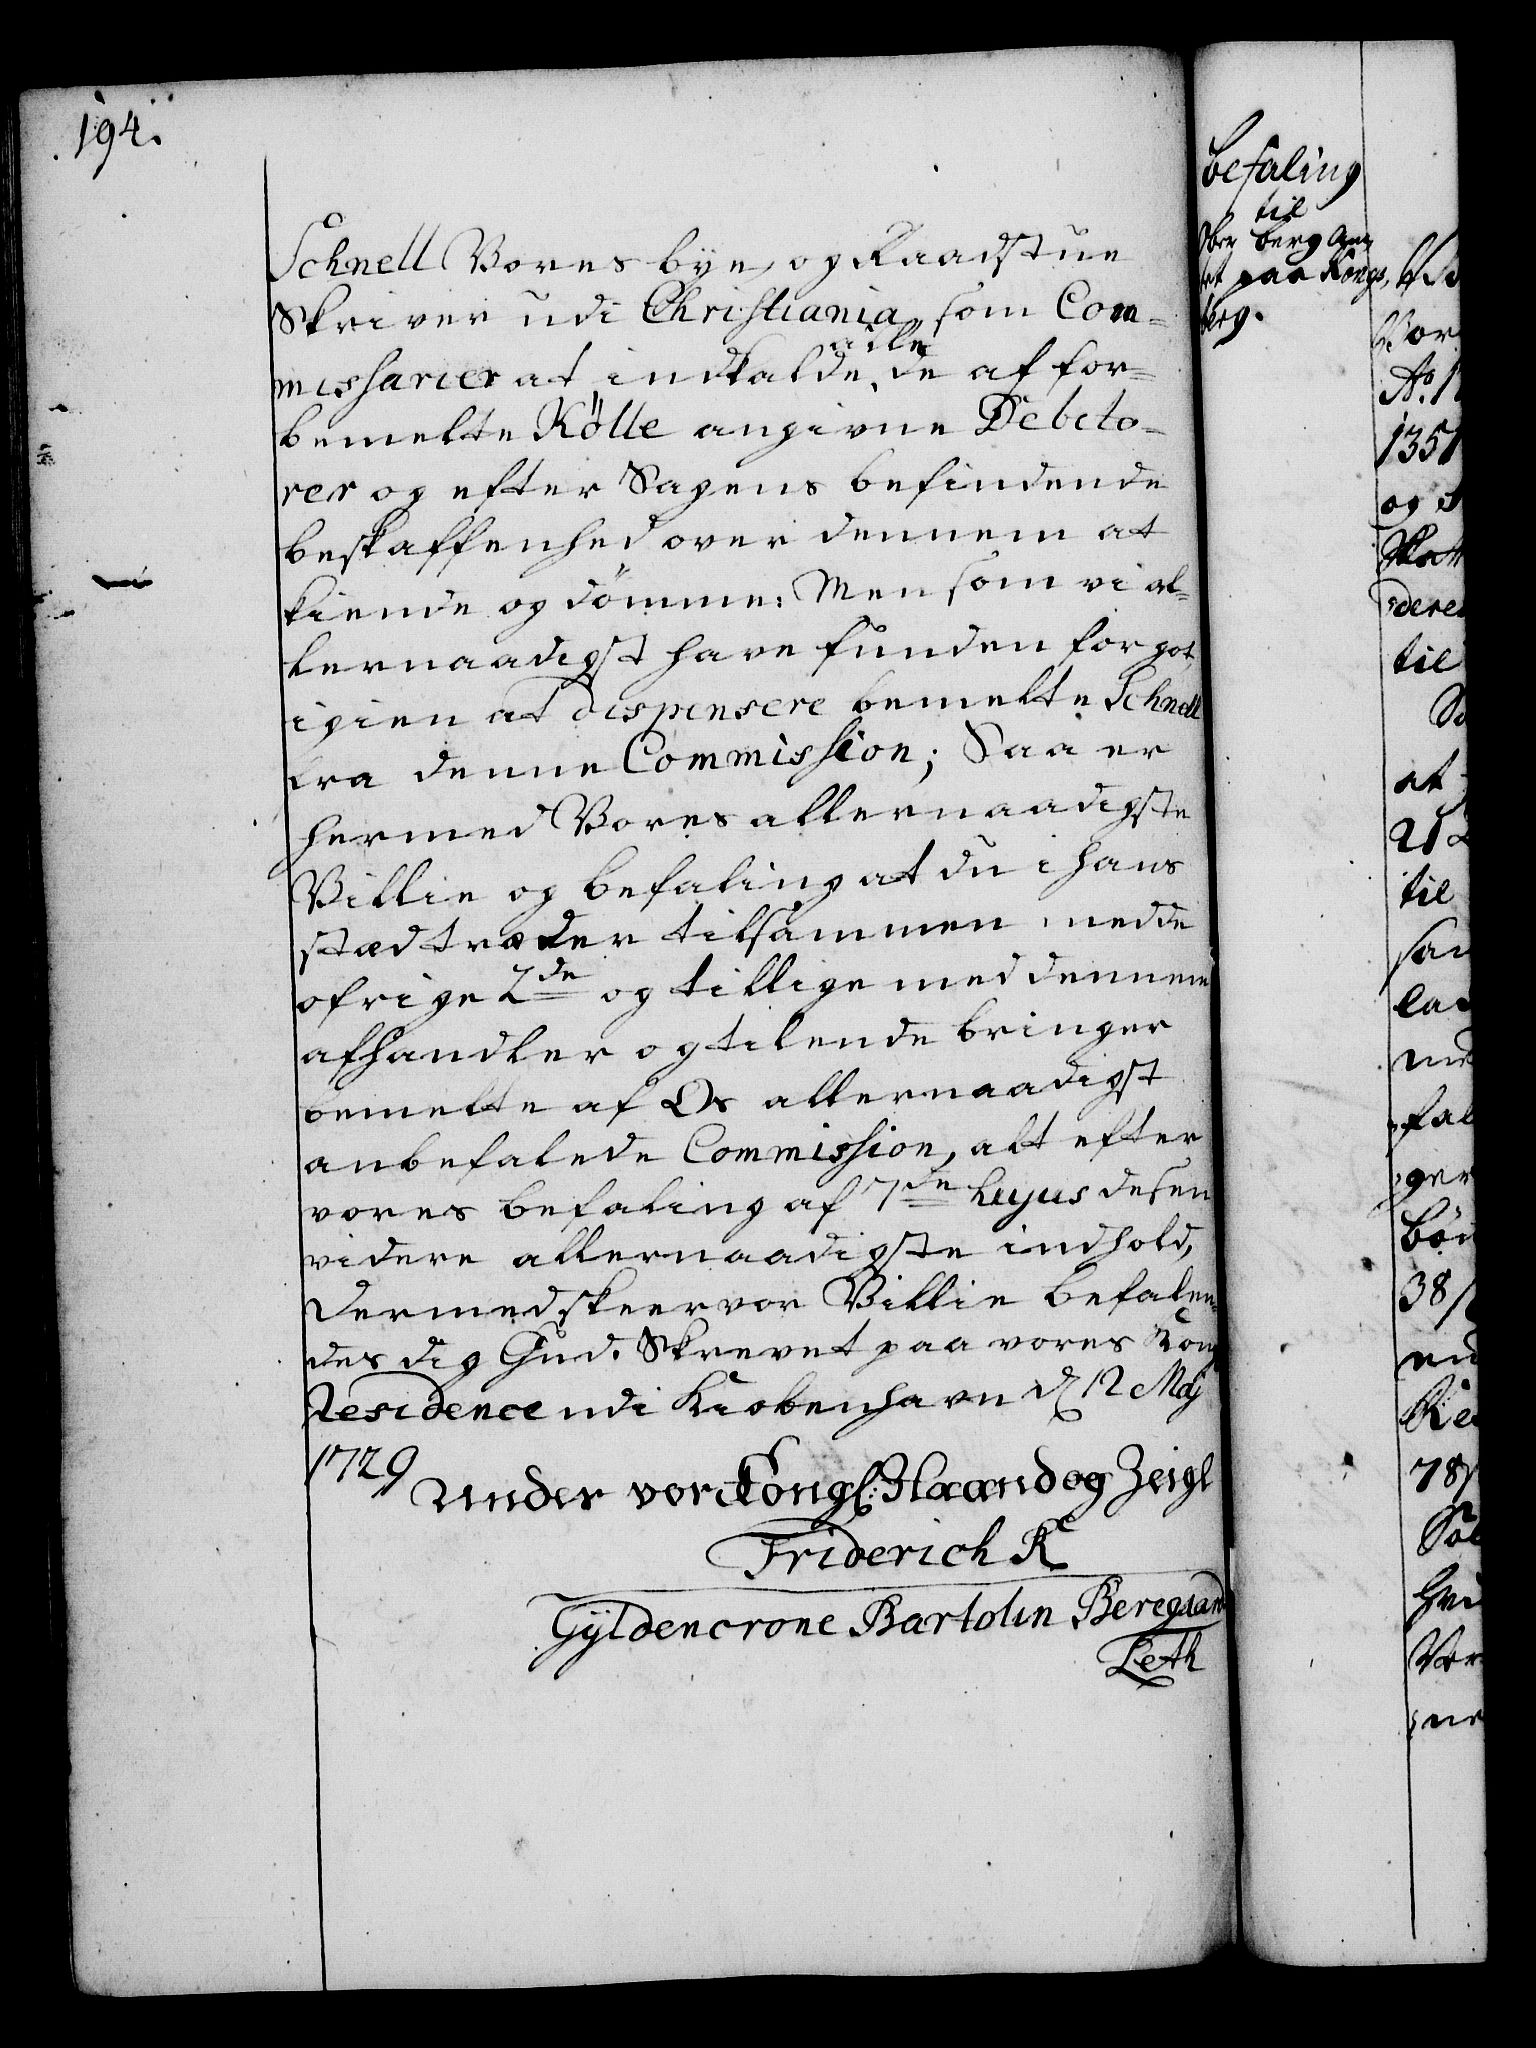 194.
Schnell Vores bye, og Raadstue
Skriver udi Christiania, som Com=
missarier at indkalde alle de af for=
bemelte Kölle angivne Debito=
rer og efter Sagens befindende
beskaffenhed over dennem at
kiende og dömme: Men som vi al=
lernaadigst have funden for got
igien at dispensere bemelte Schnell
fra denne Commission; Saa er
hermed Vores allernaadigste
Villie og befaling at du i hans
stæd træder tilsammen med de
ofrige 2de og tillige med dennem
afhandler og til ende bringer
bemelte af Os allernaadigst
anbefalede Commission, alt efter
vores befaling af 7de hujus desen
videre allernaadigste indhold,
Dermed skeer vor Villie befalen=
des dig Gud. Skrevet paa vores Kong
Residence udi Kiobenhavn d 12 Maj
1729
Under vor Kongl: Haand og Zeigl
Friderich R
Gyldencrone Bartolin Beregaard
Leth
Befaling
til
Ober berg Am
tet paa Kongs,
berg.
Vor
Ao. 1
1351
og
dere
til
So
at
212
til
san
lan
fal
ger
38
78
Vor